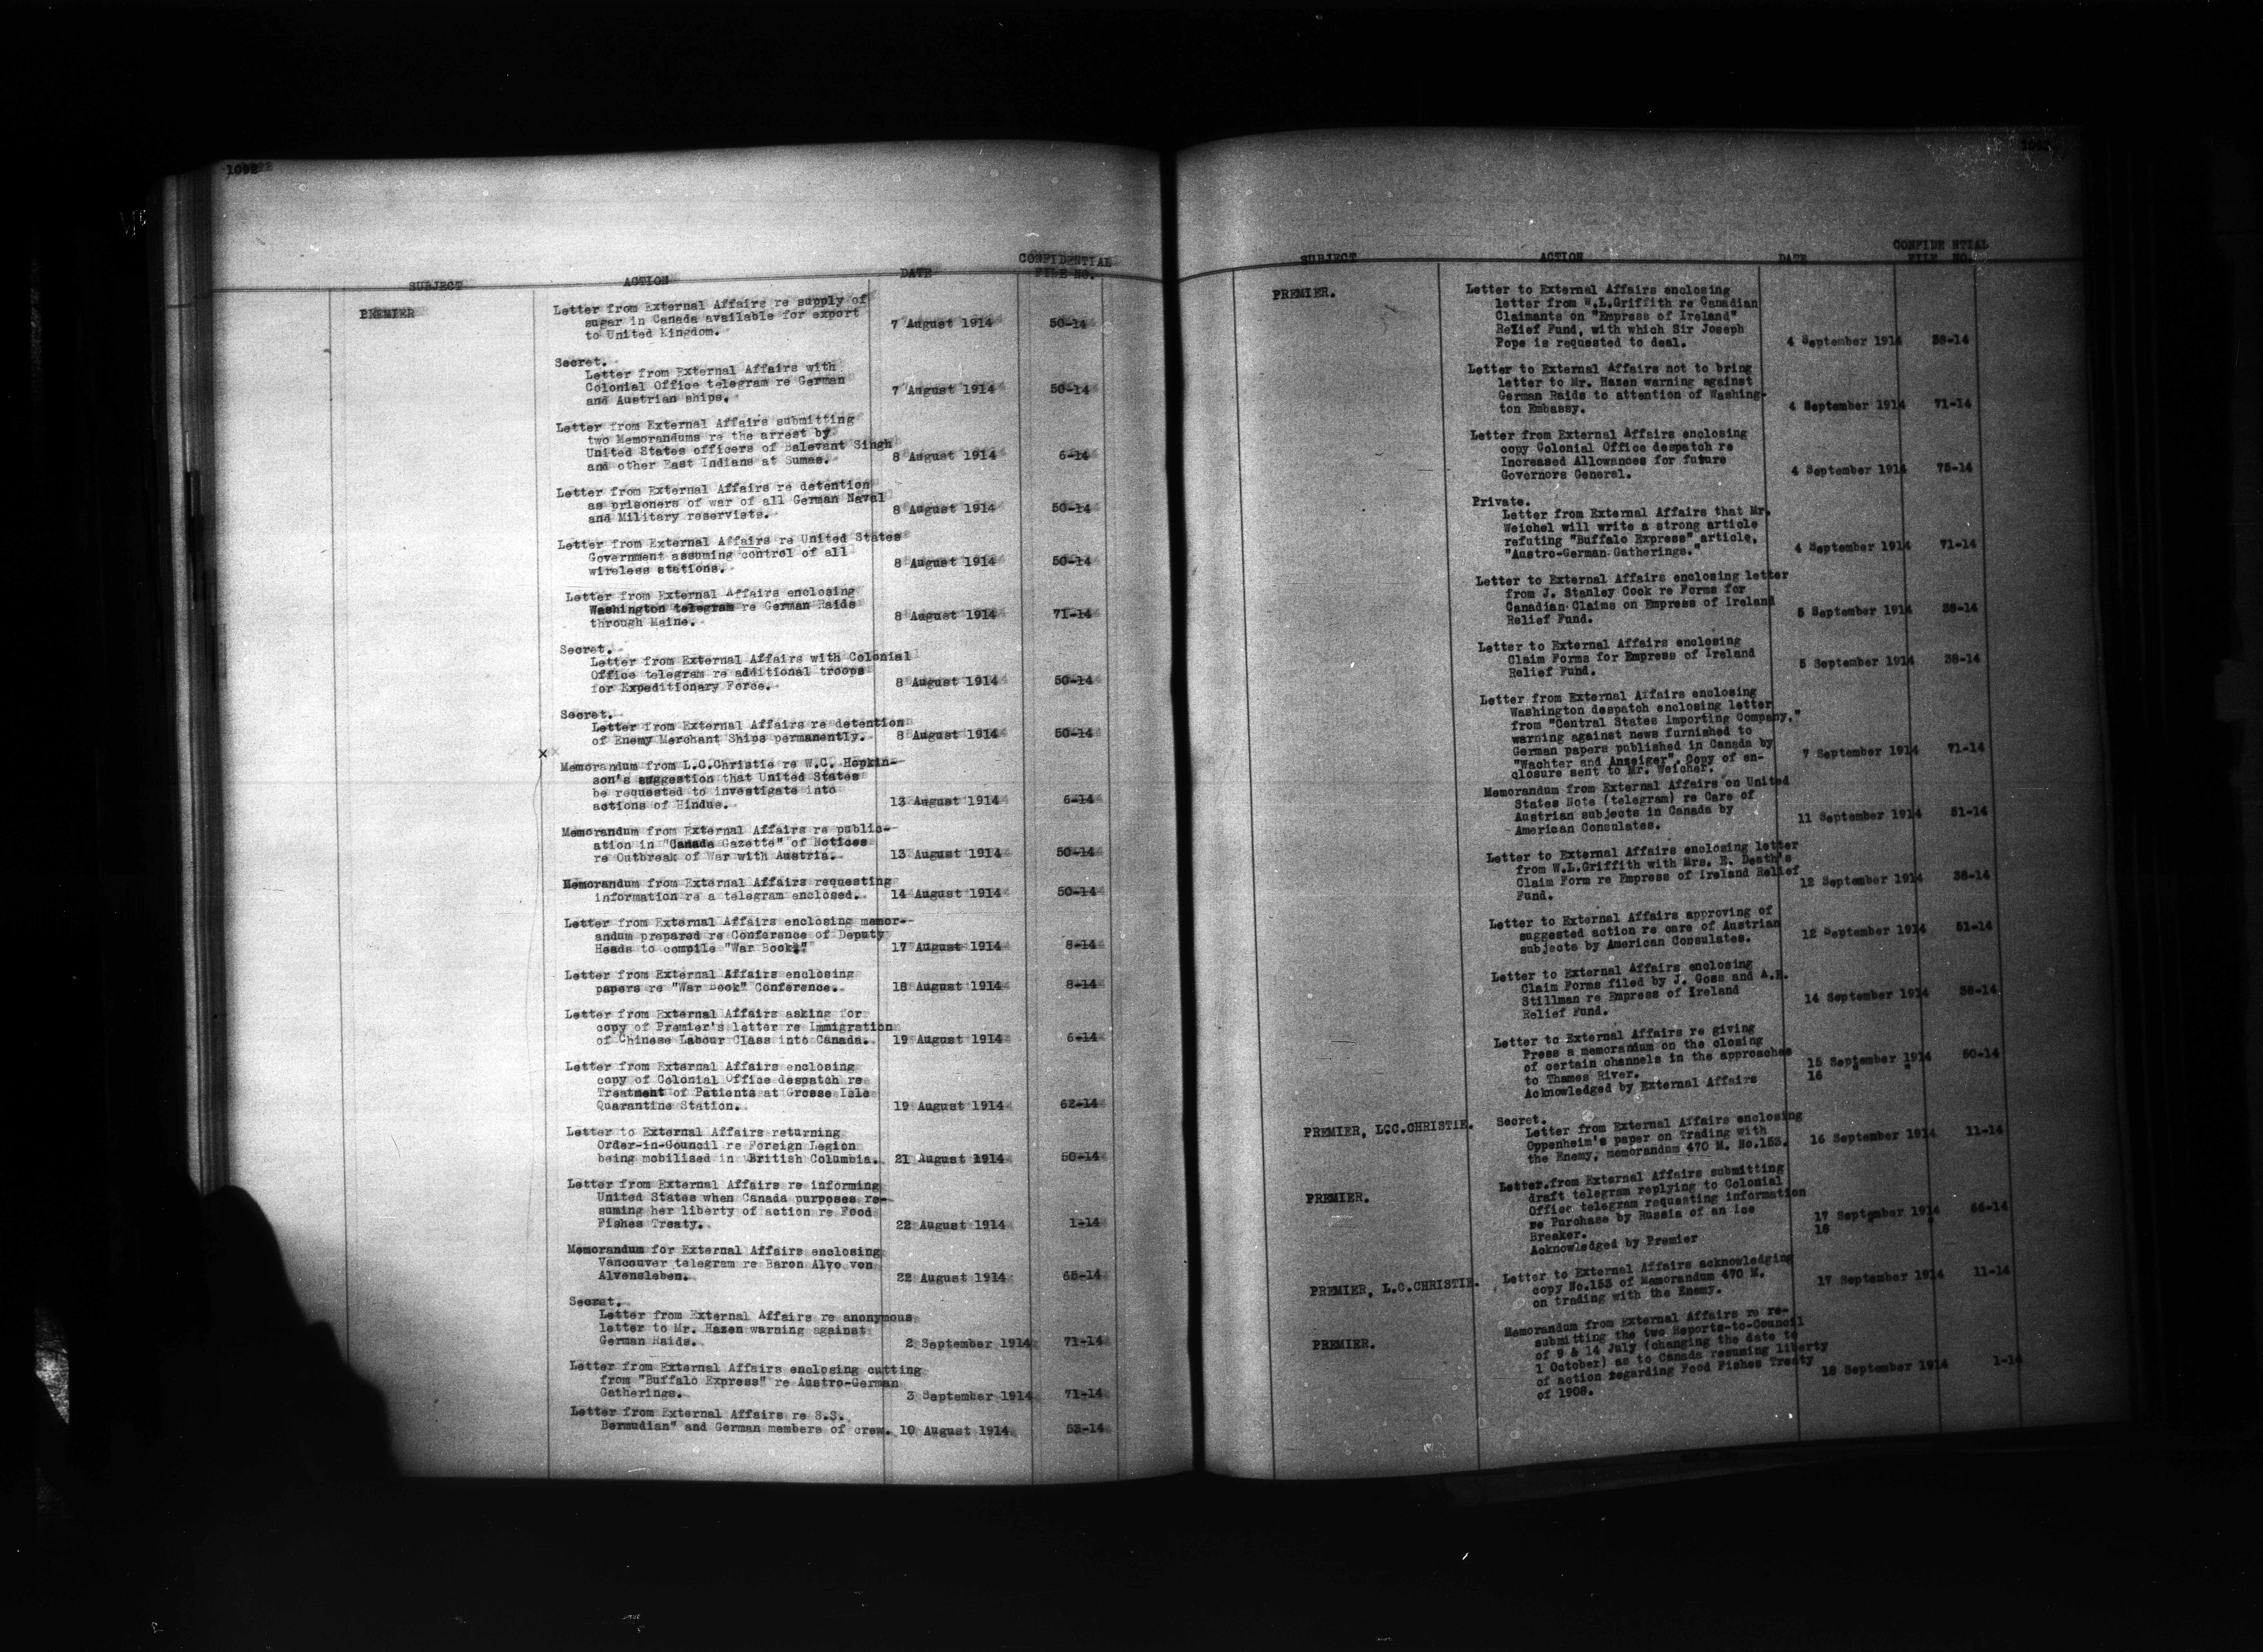 1092
SUBJECT ACTION DATE CONFIDENTIAL FILE NO.
PREMIER
Letter from External Affairs re supply of
sugar in Canada available for export
to United Kingdom. 7 August 1914 50-14
Secret.
Letter from External Affairs with
Colonial Office telegram re German
and Austrian ships. 7 August 1914 50-14
Letter from External Affairs submitting
two Memorandums re the arrest by
United States officers of Balevant Singh
and other East Indians at Sumas. 8 August 1914 6-14
Letter from External Affairs re detention
as prisoners of war of all German Naval
and Military reservists. 8 August 1914 50-14
Letter from External Affairs re United States
Government assuming control of all
wireless stations. 8 August 1914 50-14
Letter from External Affairs enclosing
Washington telegram re German Raids
through Maine. 8 August 1914 71-14
Secret.
Letter from External Affairs with Colonial
Office telegram re additional troops
for Expeditionary Force. 8 August 1914 50-14
Secret.
Letter from External Affairs re detention
of Enemy Merchant Ships permanently. 8 August 1914 50-14
x
Memorandum from L.C.Christie re W.C. Hopkin-
son's suggestion that United States
be requested to investigate into
actions of Hindus. 13 August 1914 6-14
Memorandum from External Affairs re public-
ation in "Canada Gazette" of Notices
re Outbreak of War with Austria. 13 August 1914 50-14
Memorandum from External Affairs requesting
information re a telegram enclosed. 14 August 1914 50-14
Letter from External Affairs enclosing memor-
andum prepared re Conference of Deputy
Heads to compile "War Book." 17 August 1914 8-14
Letter from External Affairs enclosing
papers re "War Book" Conference. 18 August 1914 8-14
Letter from External Affairs asking for
copy of Premier's letter re Immigration
of Chinese Labour Class into Canada. 19 August 1914 6-14
Letter from External Affairs enclosing
copy of Colonial Office despatch re
Treatment of Patients at Grosse Isle
Quarantine Station. 19 August 1914 62-14
Letter to External Affairs returning
Order-in-Council re Foreign Legion
being mobilised in British Columbia. 21 August 1914 50-14
Letter from External Affairs re informing
United States when Canada purposes re-
suming her liberty of action re Food
Fishes Treaty. 22 August 1914 1-14
Memorandum for External Affairs enclosing
Vancouver telegram re Baron Alvo von
Alvensleben. 22 August 1914 65-14
Secret.
Letter from External Affairs re anonymous
letter to Mr. Hazen warning against
German Raids. 2 September 1914 71-14
Letter from External Affairs enclosing cutting
from "Buffalo Express" re Austro-German
Gatherings. 3 September 1914 71-14
Letter from External Affairs re S.S.
Bermudian" and German members of crew. 10 August 1914 53-14
SUBJECT ACTION DATE CONFIDENTIAL FILE NO.
PREMIER.
Letter to External Affairs enclosing
letter from W.L.Griffith re Canadian
Claimants on "Empress of Ireland"
Relief Fund, with which Sir Joseph
Pope is requested to deal. 4 September 1914 38-14
Letter to External Affairs not to bring
letter to Mr. Hazen warning against
German Raids to attention of Washing-
ton Embassy. 4 September 1914 71-14
Letter from External Affairs enclosing
copy Colonial Office despatch re
Increased Allowances for future
Governors General. 4 September 1914 75-14
Private.
Letter from External Affairs that Mr.
Weichel will write a strong article
refuting "Buffalo Express" article,
"Austro-German Gatherings." 4 September 1914 71-14
Letter to External Affairs enclosing letter
from J. Stanley Cook re Forms for
Canadian Claims on Empress of Ireland
Relief Fund. 5 September 1914 38-14
Letter to External Affairs enclosing
Claim Forms for Empress of Ireland
Relief Fund. 5 September 1914 38-14
Letter from External Affairs enclosing
Washington despatch enclosing letter
from "Central States Importing Company,"
warning against news furnished to
German papers published in Canada by
"Wachter and Anzeiger". Copy of en-
closure sent to Mr. Weichel. 7 September 1914 71-14
Memorandum from External Affairs on United
States Note (telegram) re Care of
Austrian subjects in Canada by
American Consulates. 11 September 1914 51-14
Letter to External Affairs enclosing letter
from W.L.Griffith with Mrs. E. Death's
Claim Form re Empress of Ireland Relief
Fund. 12 September 1914 38-14
Letter to External Affairs approving of
suggested action re care of Austrian
subjects by American Consulates. 12 September 1914 51-14
Letter to External Affairs enclosing
Claim Forms filed by J. Goss and A.E.
Stillman re Empress of Ireland
Relief Fund. 14 September 1914 38-14
Letter to External Affairs re giving
Press a memorandum on the closing
of certain channels in the approaches
to Thames River. 15 September 1914 50-14
Acknowledged by External Affairs 16 " "
PREMIER, L.C.CHRISTIE. Secret.
Letter from External Affairs enclosing
Oppenheim's paper on Trading with
the Enemy, memorandum 470 M. No.153. 16 September 1914 11-14
PREMIER. Letter from External Affairs submitting
draft telegram replying to Colonial
Office telegram requesting information
re Purchase by Russia of an Ice
Breaker. 17 September 1914 66-14
Acknowledged by Premier 18 " "
PREMIER, L.C.CHRISTIE. Letter to External Affairs acknowledging
copy No.153 of Memorandum 470 M.
on trading with the Enemy. 17 September 1914 11-14
PREMIER. Memorandum from External Affairs re re-
submitting the two Reports-to-Council
of 9 & 14 July (changing the date to
1 October) as to Canada resuming liberty
of action regarding Food Fishes Treaty
of 1908. 18 September 1914 1-14